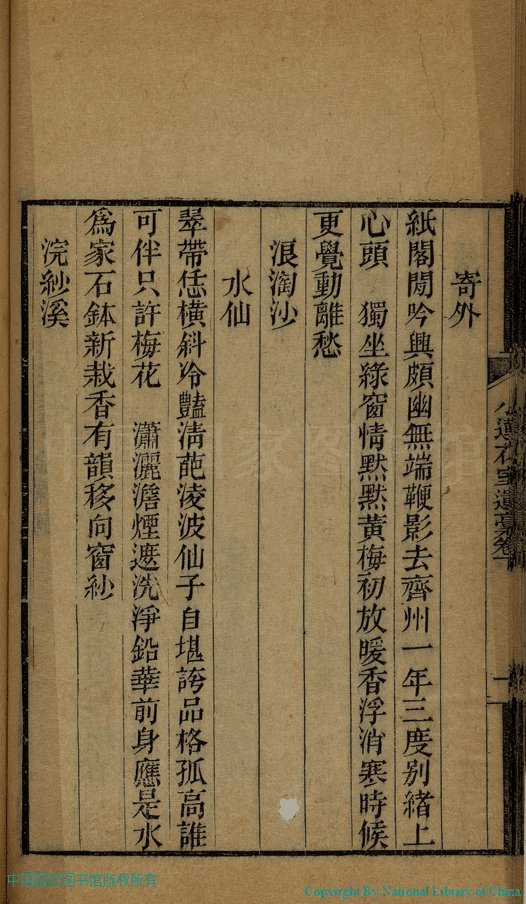 寄外
紙閣閒吟興頗幽無端鞭影去齊州一年三度別緒上
心頭　獨坐綠窗情默默黃梅初放暖香浮消寒時候
更覺動離愁
浪淘沙
水仙
翠帶恁橫斜冷豔清葩淩波仙子自堪誇品格孤高誰
可伴只許梅花　瀟灑澹煙遮洗淨鉛華前身應是水
爲家石鉢新栽香有韻移向窗紗
浣紗溪
石室遺稾卷
中国国家图书馆版权所有
Copyright By National Library of China